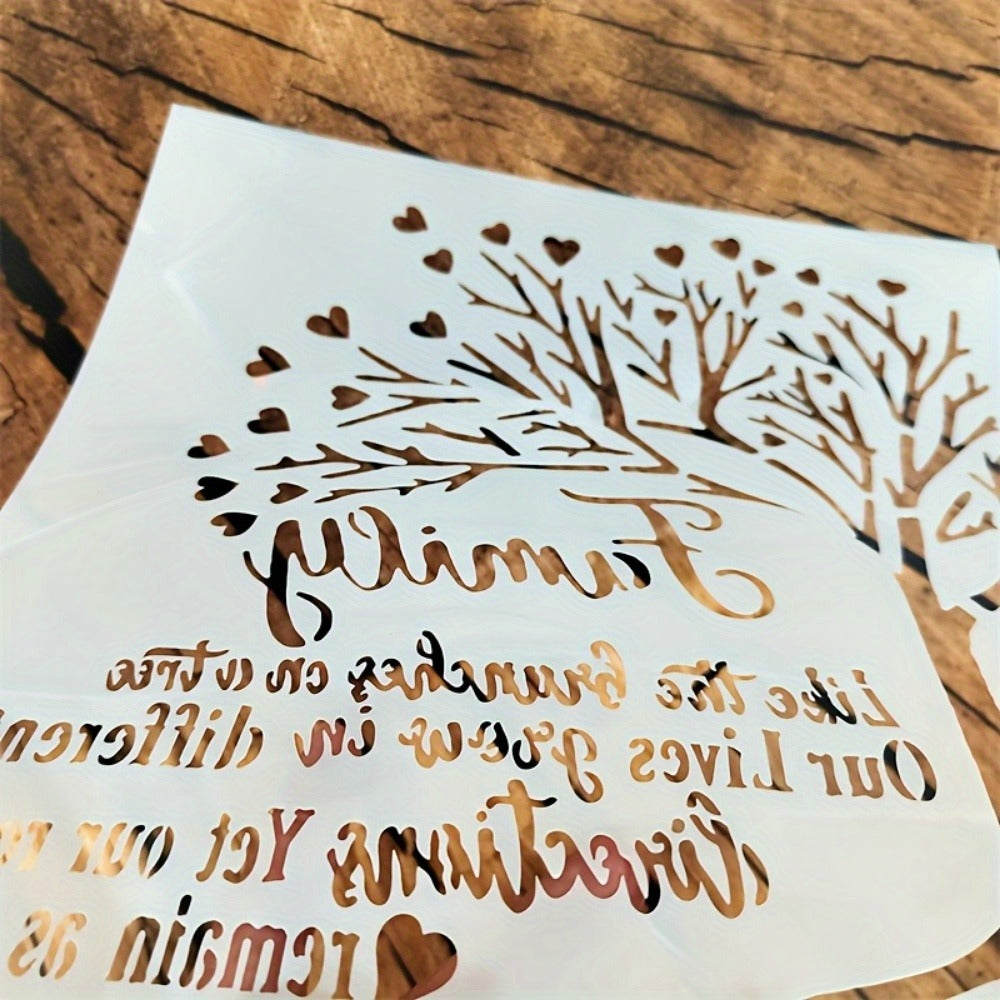 Family
Like the branches on a tree
Our Lives grow in different
directions Yet our
remain as